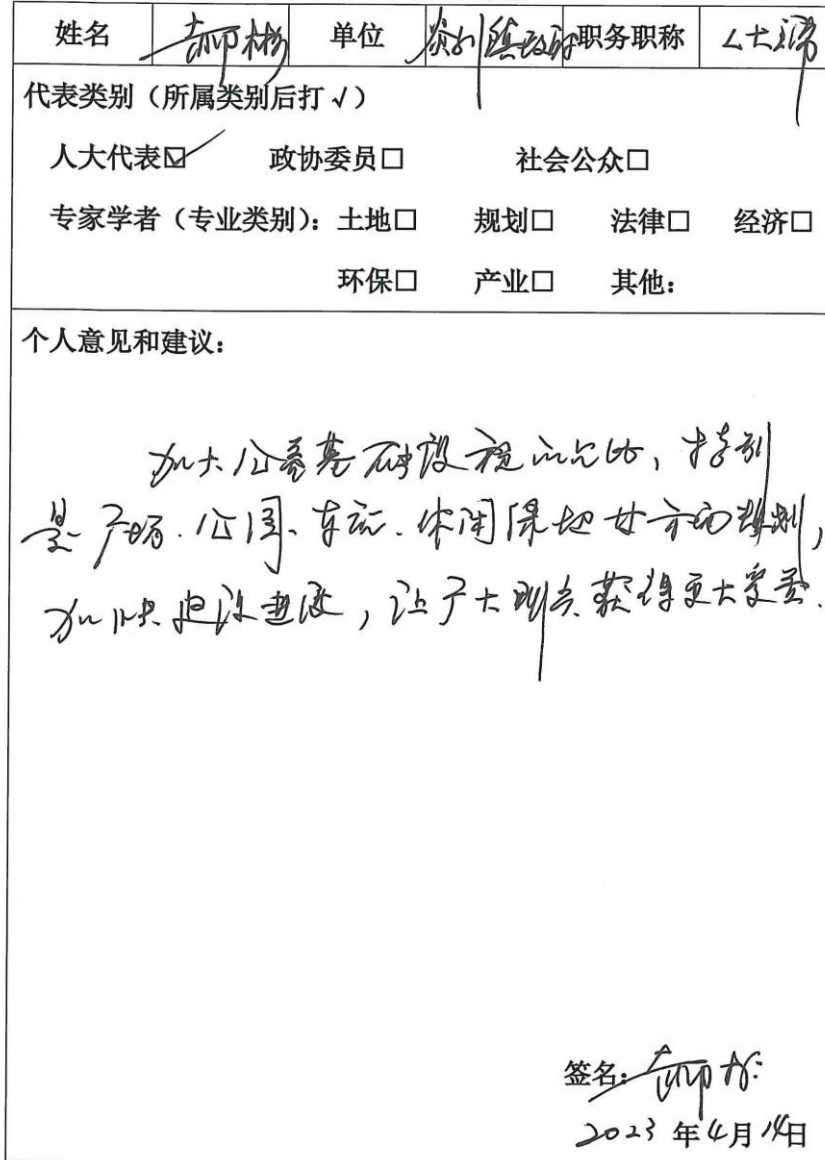 姓名 郝彬 单位 镇政府 职务职称 人大主席
代表类别（所属类别后打√）
人大代表☑ 政协委员□ 社会公众□
专家学者（专业类别）：土地□ 规划□ 法律□ 经济□
环保□ 产业□ 其他：
个人意见和建议：
加大公益基础设施的占比，特别
是广场、公园、车位、休闲绿地等方面规划，
加快建设进度，让广大群众获得更大受益。
签名：郝彬
2023年4月14日